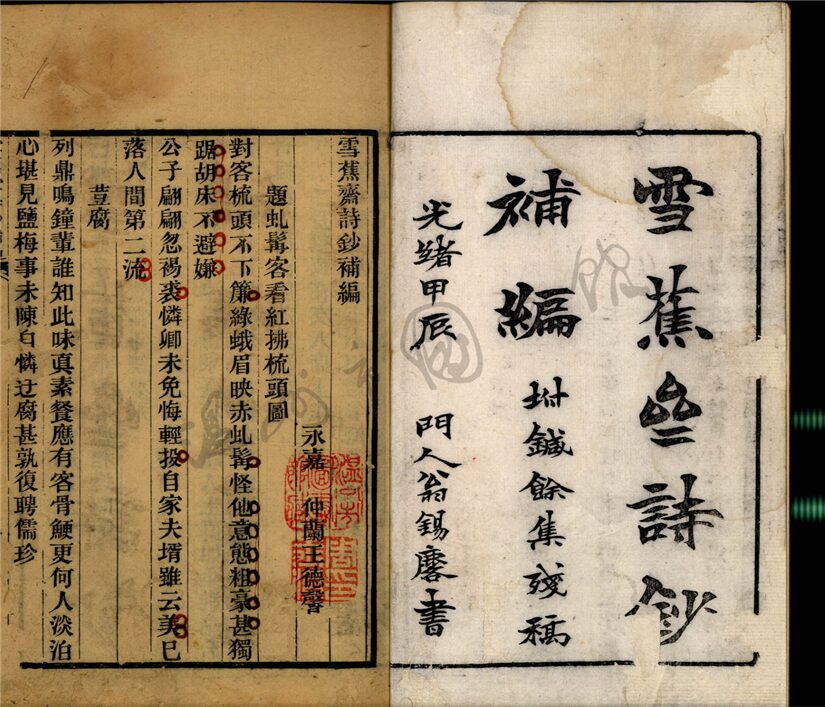 雪蕉齋詩鈔
補編 坿鍼餘集殘稿
光緒甲辰 門人翁錫麐書
雪蕉齋詩鈔補編
永嘉 仲蘭王德馨
題虬髯客看紅拂梳頭圖
對客梳頭不下簾綠蛾眉映赤虬髯怪他意態粗豪甚獨
踞胡床不避嫌
公子翩翩忽裼裘憐卿未免悔輕投自家夫壻雖云美已
落人間第二流
荳腐
列鼎鳴鐘輩誰知此味真素餐應有客骨鯁更何人淡泊
心堪見鹽梅事未陳自憐迂腐甚孰復聘儒珍